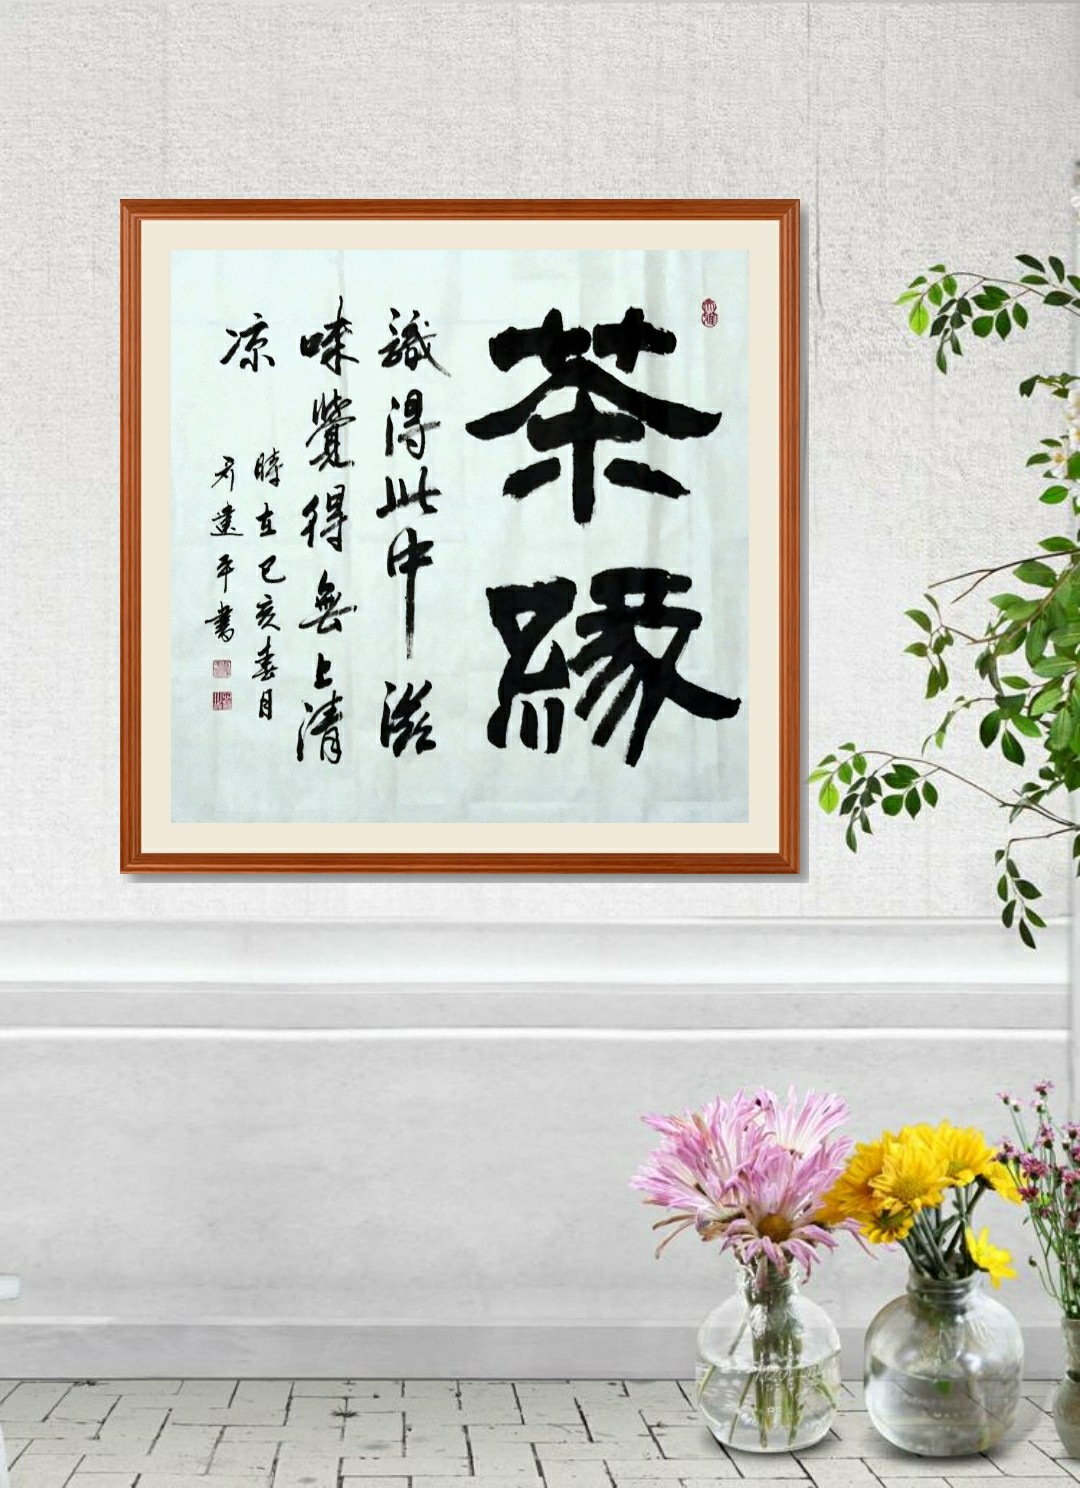 茶緣
識得此中滋
味覺得無上清
凉
時在己亥春月
遠平書